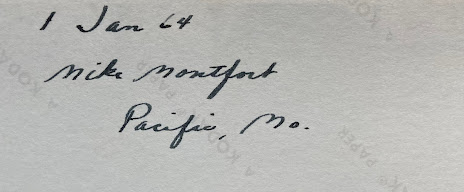 1 Jan 64
Mike Montfort
Pacific, Mo.
A KODA
PAPER
A KODA
PAPER